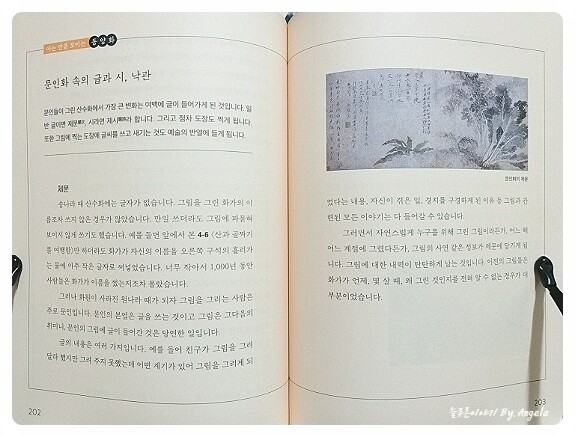 아는 만큼 보이는 동양화
문인화 속의 글과 시, 낙관
문인들이 그린 산수화에서 가장 큰 변화는 여백에 글이 들어가게 된 것입니다. 일
반 글이면 제문, 시라면 제시라 합니다. 그리고 점차 도장도 찍게 됩니다.
또한 그림에 찍는 도장에 글씨를 쓰고 새기는 것도 예술의 반열에 들게 됩니다.
제문
송나라 때 산수화에는 글자가 없습니다. 그림을 그린 화가의 이
름조차 쓰지 않은 경우가 많았습니다. 만일 쓰더라도 그림에 파묻혀
보이지 않게 쓰기도 했습니다. 예를 들면 앞에서 본 4-6 〈산과 골짜기
를 여행함〉만 하더라도 화가가 자신의 이름을 오른쪽 구석의 흘러가
는 물에 아주 작은 글자로 써넣었습니다. 너무 작아서 1,000년 동안
사람들은 화가가 이름을 썼는지조차 몰랐습니다.
그러나 화원이 사라진 원나라 때가 되자 그림을 그리는 사람은
주로 문인입니다. 문인의 본업은 글을 쓰는 것이고 그림은 그다음의
취미니, 문인의 그림에 글이 들어간 것은 당연한 일입니다.
글의 내용은 여러 가지입니다. 예를 들어 친구가 그림을 그려
달라 했지만 그려 주지 못했는데 어떤 계기가 있어 그림을 그리게 되
202
문인화의 제문
었다는 내용, 자신이 겪은 일, 경치를 구경하게 된 이유 등 그림과 관
련된 모든 이야기는 다 들어갈 수 있습니다.
그러면서 자연스럽게 누구를 위해 그린 그림이라든가, 어느 해
어느 계절에 그렸다든가, 그림의 사연 같은 정보가 제문에 담기게 됩
니다. 그림에 대한 내력이 탄탄하게 남는 것입니다. 이전의 그림들은
화가가 언제, 몇 살 때, 왜 그린 것인지를 전혀 알 수 없는 경우가 대
부분이었습니다.
203
늘푼이야기 By. Angela